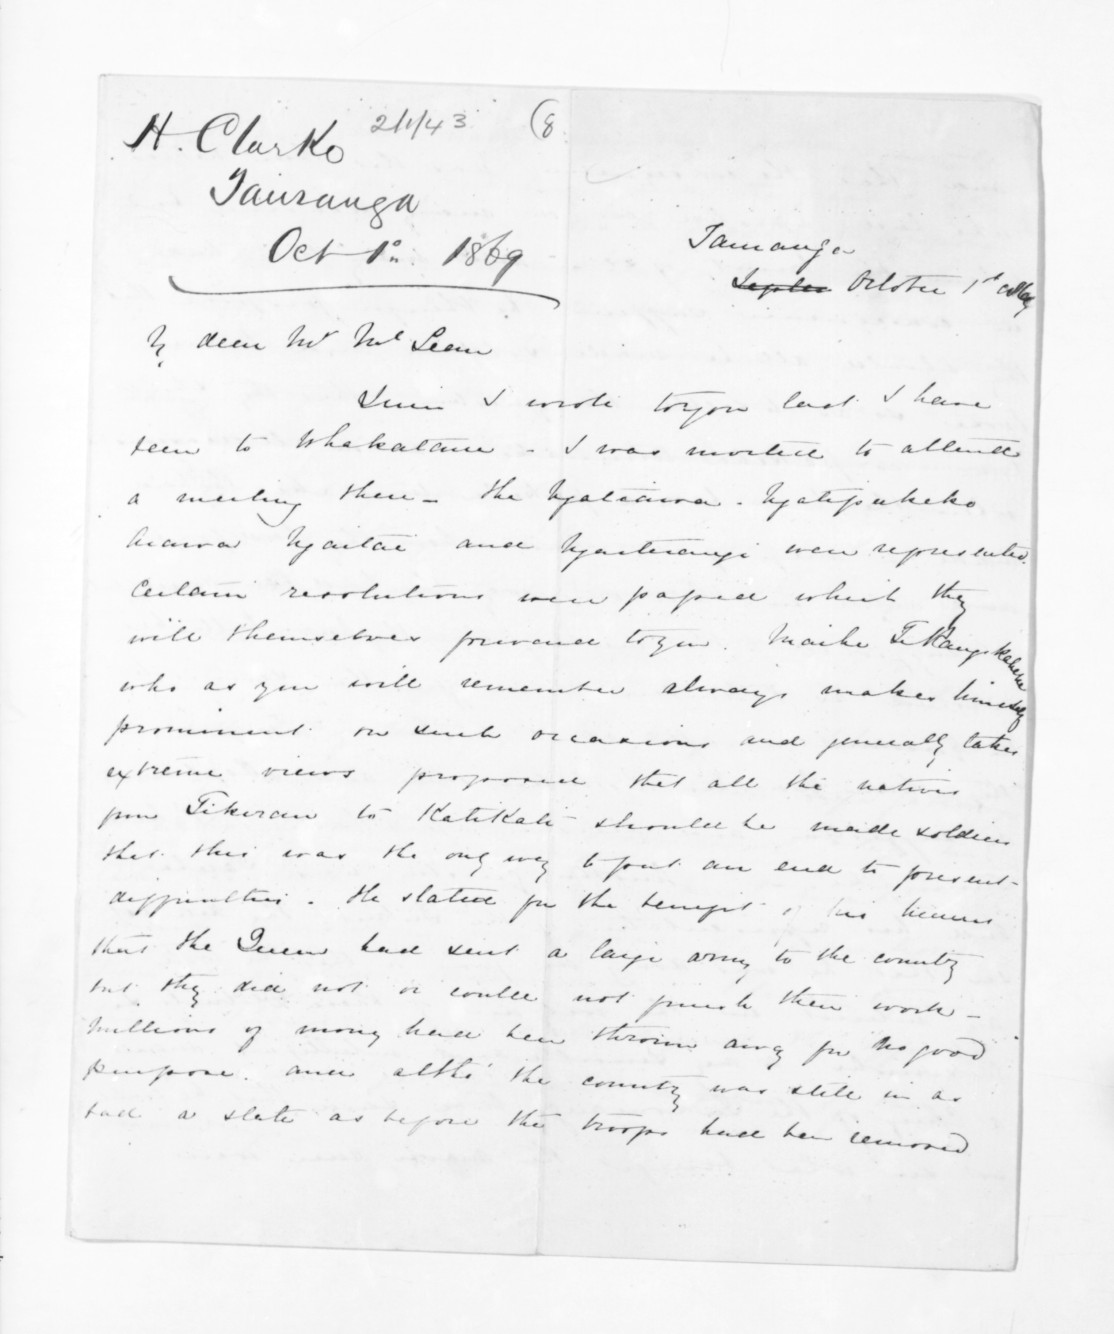 H. Clarke
2/1/43
(8
Tauranga
Oct 1st. 1869
Tauranga
Septer October 1st 1869
My dear Mr McLean
Since I wrote to you last I have
been to Whakatane - I was invited to attend
a meeting there - the Ngatiawa. Ngatipukeko
Arawa Ngaitai and Ngaiterangi were represented.
Certain resolutions were passed which they
will themselves forward to you. Maihi Te Rangikaheke
who as you will remember always makes himself
prominent on such occasions and generally takes
extreme views proposed that all the natives
from Tikirau to Katikati should be made soldiers
that this was the only way to put an end to present
difficulties. He stated for the benefit of his hearers
that the Queen had sent a large army to the country
but they did not or could not finish their work -
millions of money had been thrown away for no good
purpose. and altho' the country was still in as
bad a state as before the troops had been removed